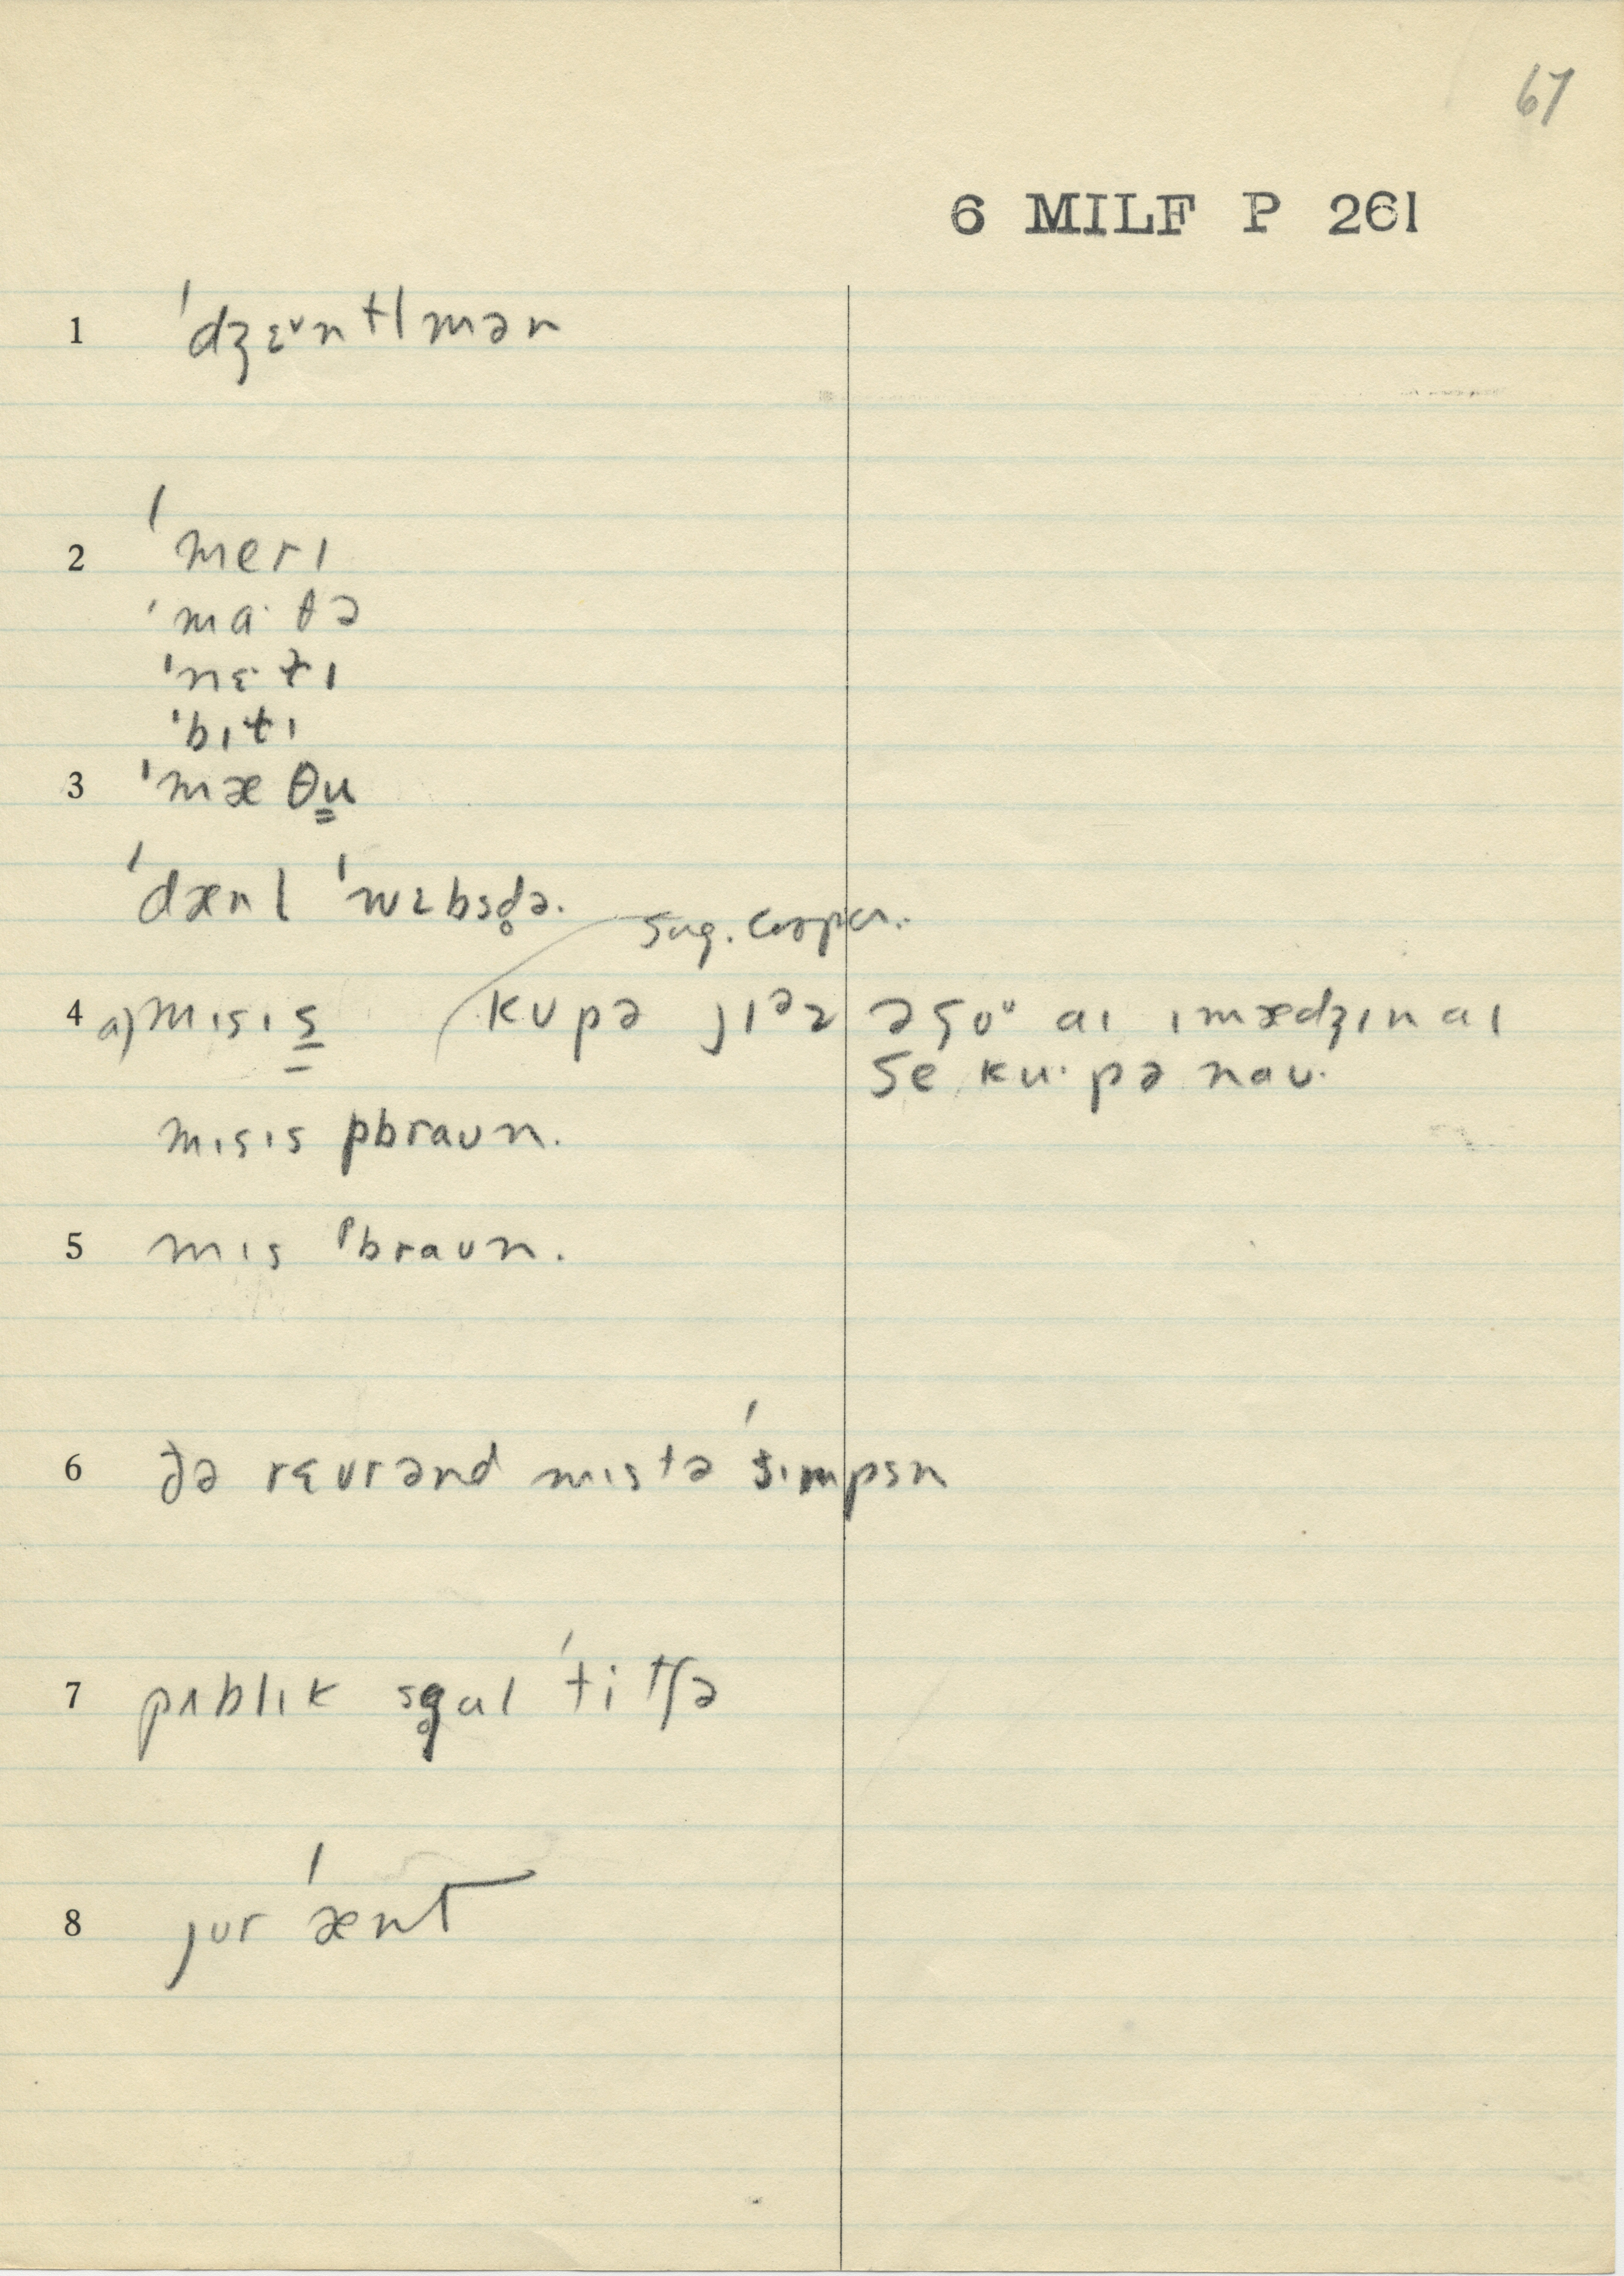 67
6 MILF P 261
1 ˈdʒɛᵛntlmən
2 ˈmerɪ
ˈma·θə
ˈnɛt̬ɪ
ˈbɪt̬ɪ
3 ˈmæθu̳
ˈdænl ˈwɛbsd̥ə.
sug. cooper.
4 a) mɪsɪs̳ kupə jɪᵊz əgoᵘ aɪ ɪmædʒɪn aɪ
se ku·pə naʊ.
mɪsɪs pbraʊn.
5 mɪs ᵖbraʊn.
6 ðə rɛvrənd mɪstə ˈsɪmpsn
7 pʌblɪk sg̥ul ˈtitʃə
8 jʊr ˈænt